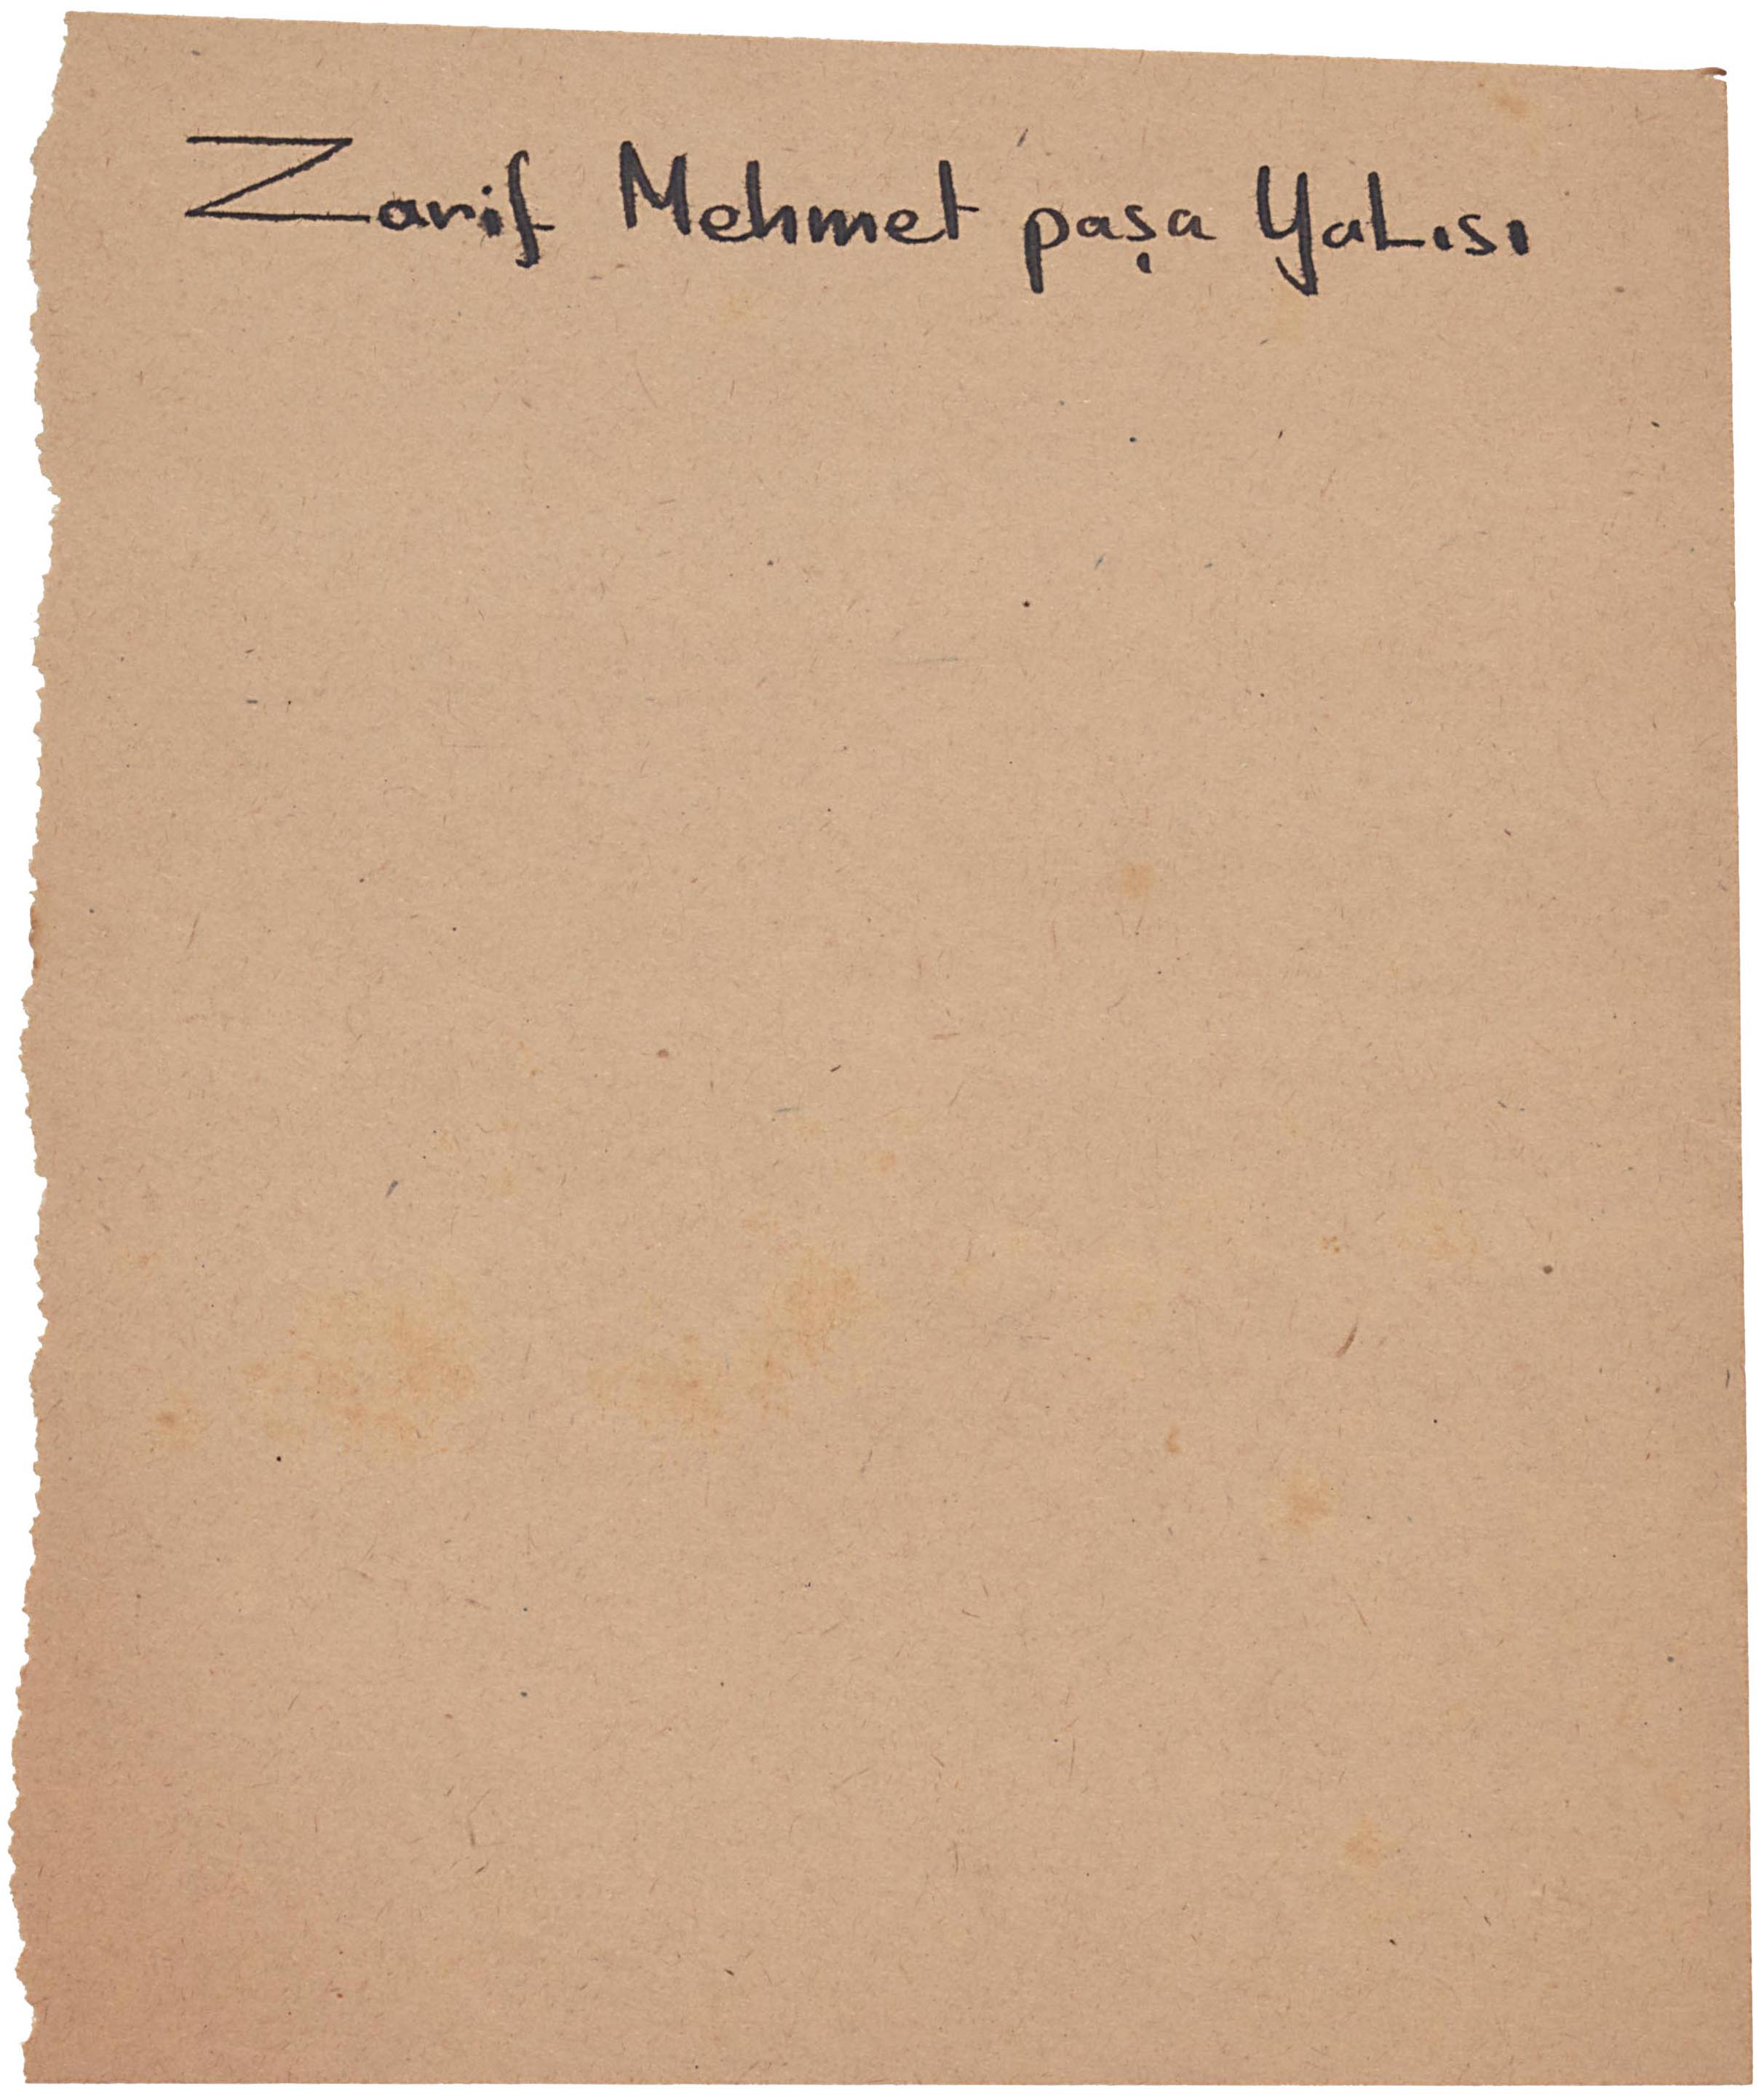 Zarif Mehmet paşa YaLısı